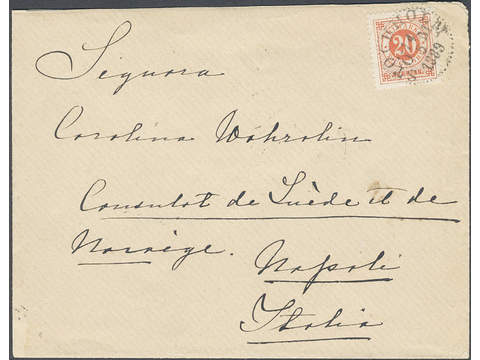 Signora
Carolina Wohrolin
Consulat de Suède et de
Norvège. Napoli
Italia
20
1889